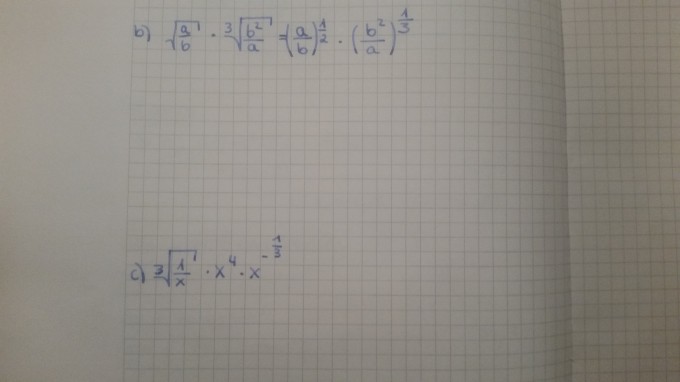 b) √(a/b) · ∛(b²/a) = (a/b)^(1/2) · (b²/a)^(1/3)
c) ∛(1/x) · x⁴ · x^(-1/3)